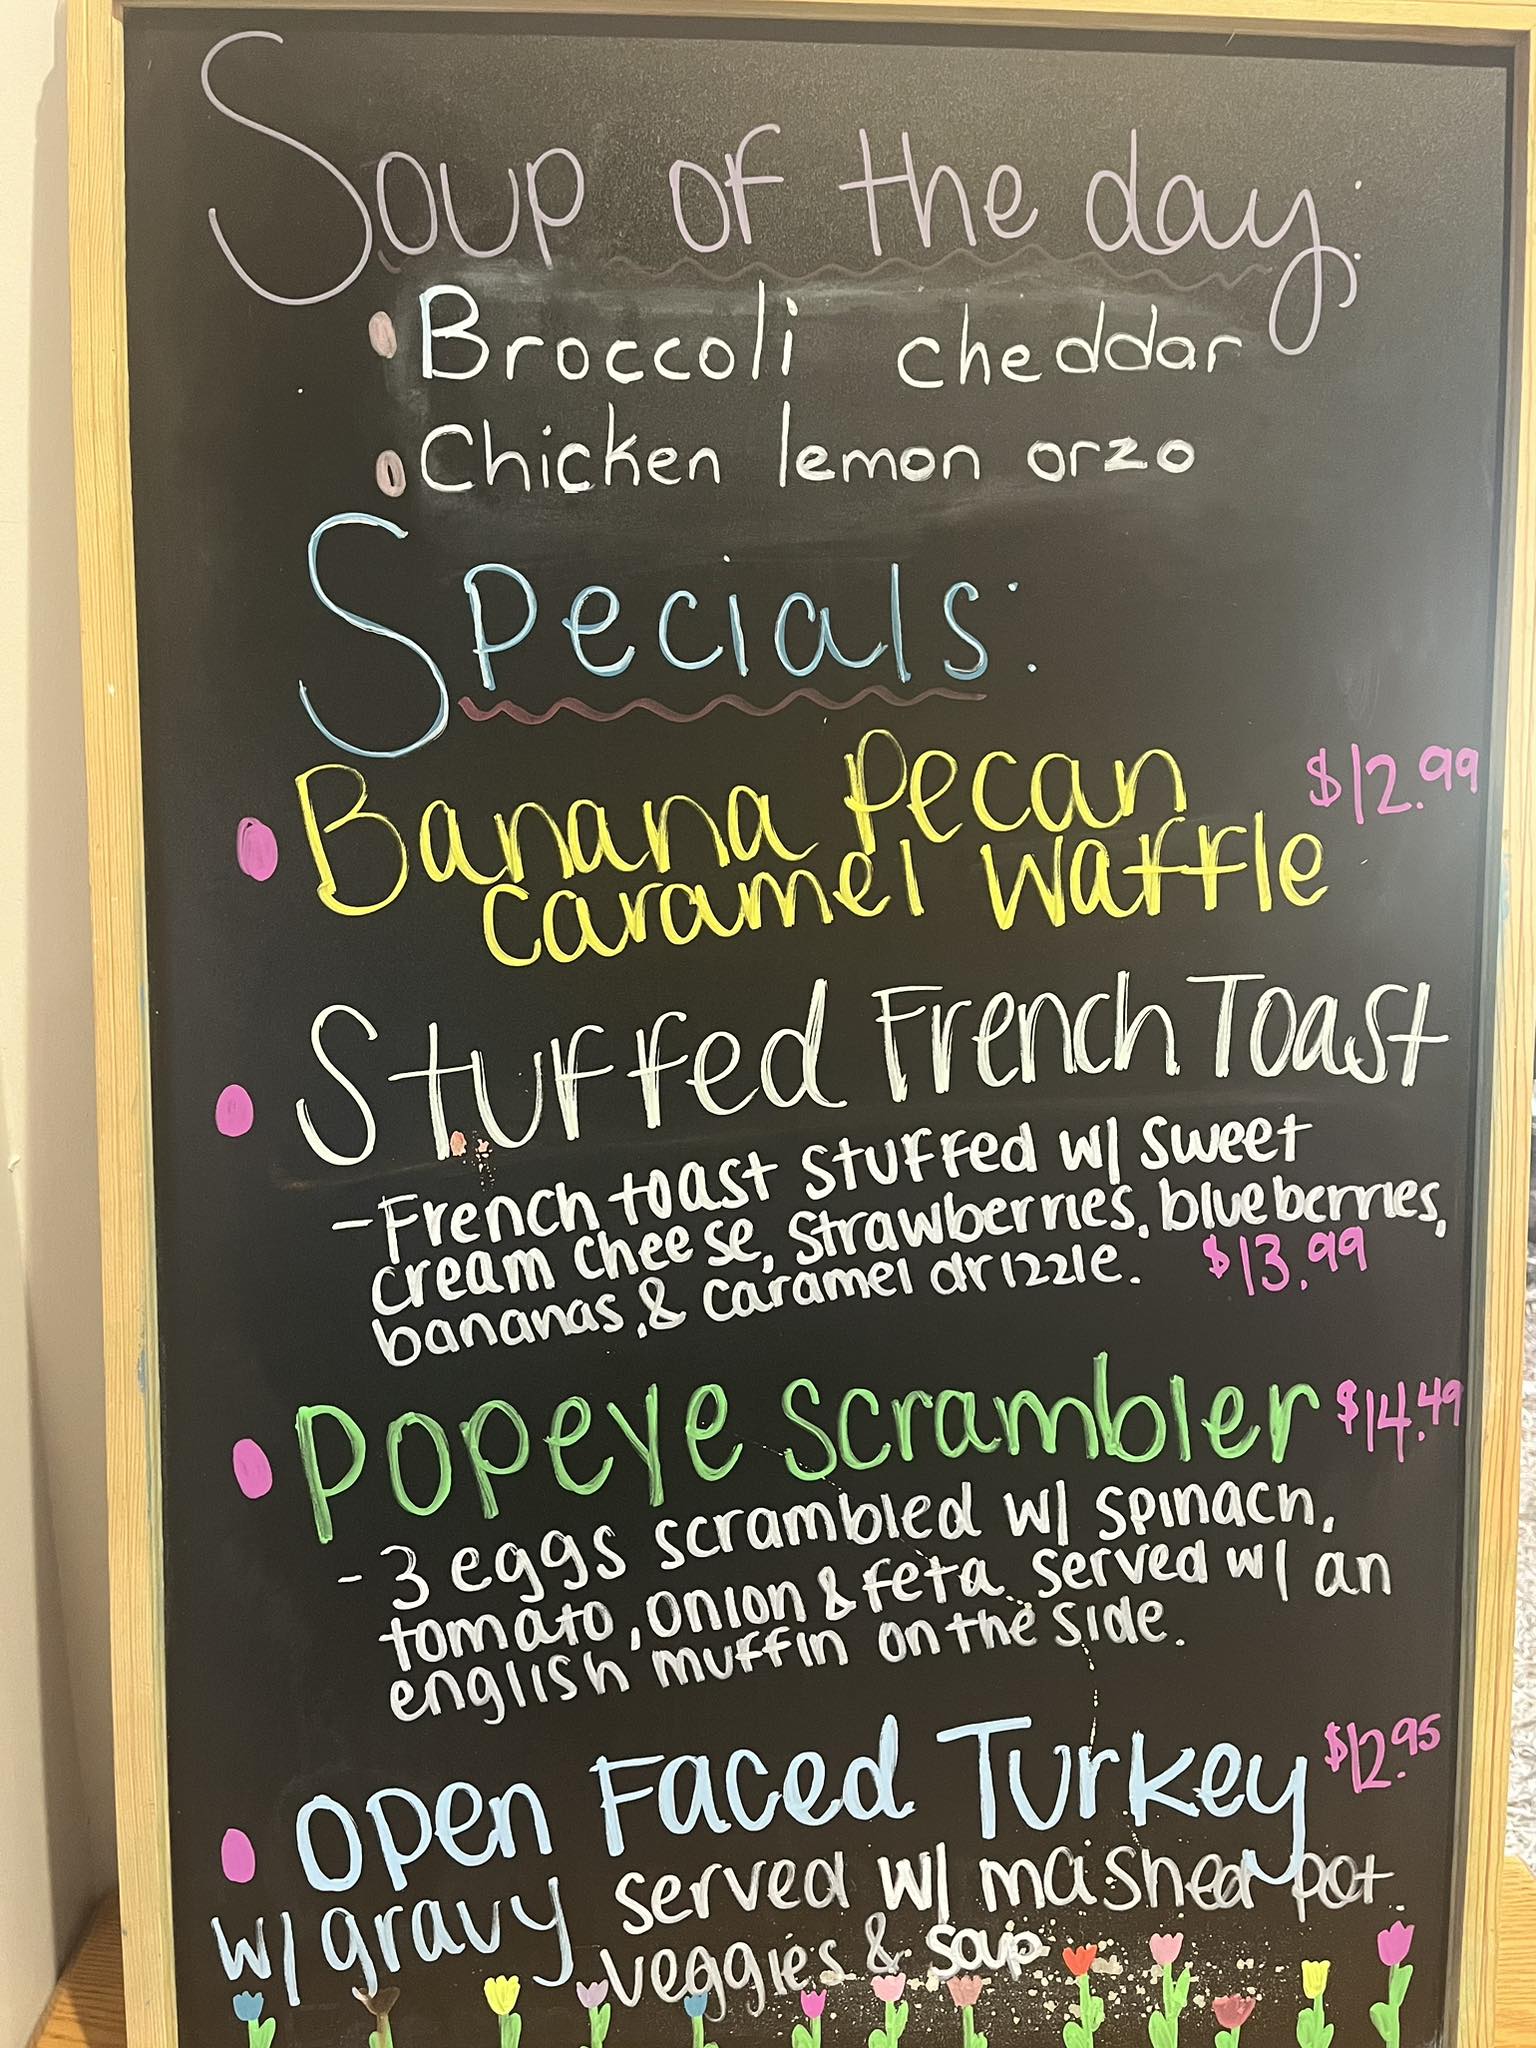 Soup of the day:
Broccoli cheddar
Chicken lemon orzo
Specials:
Banana Pecan $12.99
caramel waffle
Stuffed French Toast
- French toast stuffed w/ sweet
cream cheese, strawberries, blueberries,
bananas, & caramel drizzle. $13.99
Popeye scrambler $14.49
- 3 eggs scrambled w/ spinach,
tomato, onion & feta served w/ an
english muffin on the side.
Open Faced Turkey $12.95
w/ gravy served w/ mashed pot.
veggies & soup